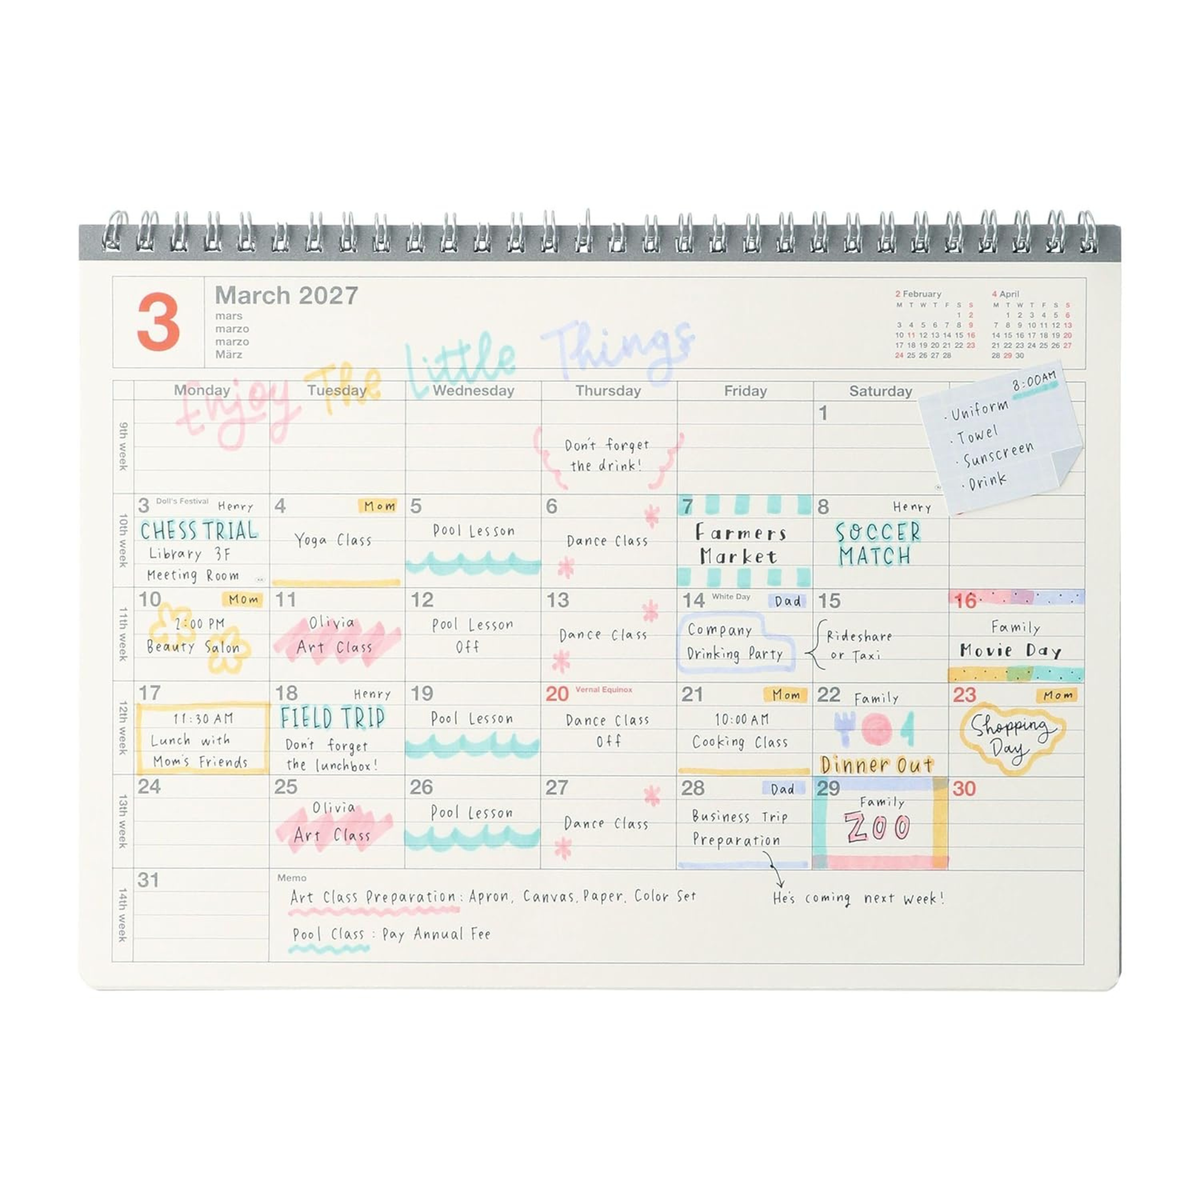 3
March 2027
mars
marzo
marzo
März
Enjoy The Little Things
2 February
M T W T F S S
1 2
3 4 5 6 7 8 9
10 11 12 13 14 15 16
17 18 19 20 21 22 23
24 25 26 27 28
4 April
M T W T F S S
1 2 3 4 5 6
7 8 9 10 11 12 13
14 15 16 17 18 19 20
21 22 23 24 25 26 27
28 29 30
Monday Tuesday Wednesday Thursday Friday Saturday
8:00AM
· Uniform
· Towel
· Sunscreen
· Drink
9th week
Don't forget
the drink!
1
10th week
3 Doll's Festival Henry
CHESS TRIAL
Library 3F
Meeting Room
4 Mom
Yoga Class
5
Pool Lesson
6
Dance Class
7
Farmers
Market
8 Henry
SOCCER
MATCH
11th week
10 Mom
2:00 PM
Beauty Salon
11
Olivia
Art Class
12
Pool Lesson
Off
13
Dance Class
14 White Day Dad
Company
Drinking Party
15
Rideshare
or Taxi
16
Family
Movie Day
12th week
17
11:30 AM
Lunch with
Mom's Friends
18 Henry
FIELD TRIP
Don't forget
the lunchbox!
19
Pool Lesson
20 Vernal Equinox
Dance Class
Off
21 Mom
10:00 AM
Cooking Class
22 Family
Dinner Out
23 Mom
Shopping
Day
13th week
24
25
Olivia
Art Class
26
Pool Lesson
27
Dance Class
28 Dad
Business Trip
Preparation
29
Family
ZOO
30
14th week
31
Memo
Art Class Preparation : Apron, Canvas, Paper, Color Set
Pool Class : Pay Annual Fee
He's coming next week!